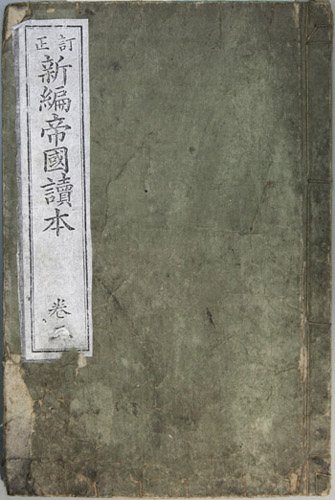 訂正
新編帝國讀本
卷